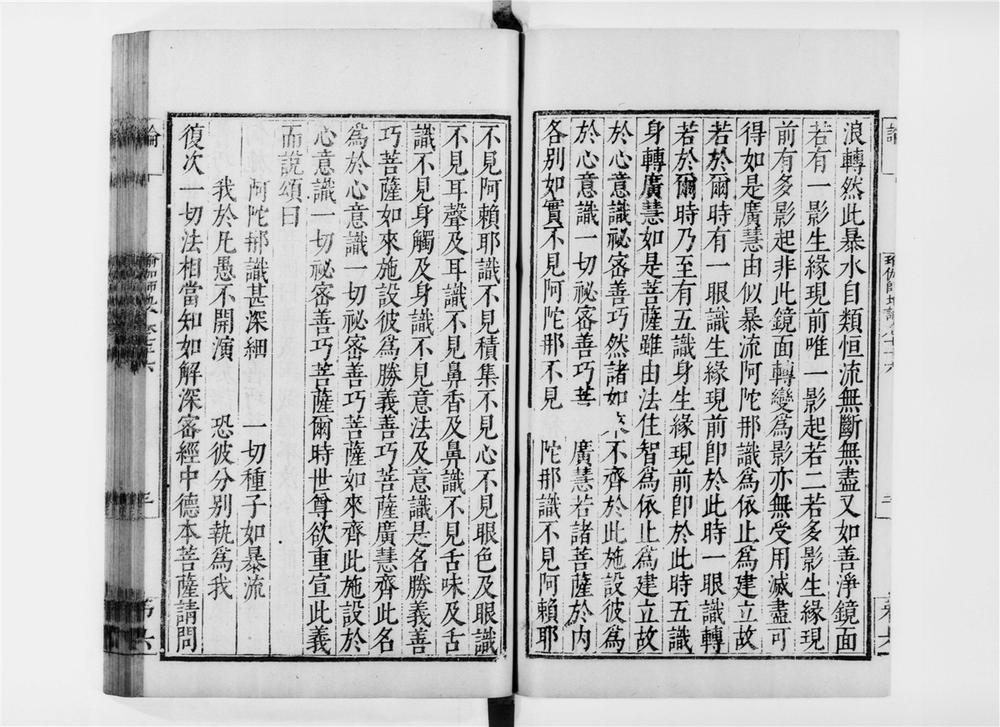 浪轉然此暴水自類恒流無斷無盡又如善淨鏡面
若有一影生緣現前唯一影起若二若多影生緣現
前有多影起非此鏡面轉變爲影亦無受用滅盡可
得如是廣慧由似暴流阿陀那識爲依止爲建立故
若於爾時有一眼識生緣現前卽於此時一眼識轉
若於爾時乃至有五識身生緣現前卽於此時五識
身轉廣慧如是菩薩雖由法住智爲依止爲建立故
於心意識祕密善巧然諸如不齊於此施設彼爲
於心意識一切祕密善巧菩廣慧若諸菩薩於内
各別如實不見阿陀那不見陀那識不見阿賴耶
不見阿賴耶識不見積集不見心不見眼色及眼識
不見耳聲及耳識不見鼻香及鼻識不見舌味及舌
識不見身觸及身識不見意法及意識是名勝義善
巧菩薩如來施設彼爲勝義善巧菩薩廣慧齊此名
爲於心意識一切祕密善巧菩薩如來齊此施設於
心意識一切祕密善巧菩薩爾時世尊欲重宣此義
而說頌曰
阿陀那識甚深細　一切種子如暴流
我於凡愚不開演　恐彼分別執爲我
復次一切法相當知如解深密經中德本菩薩請問
論